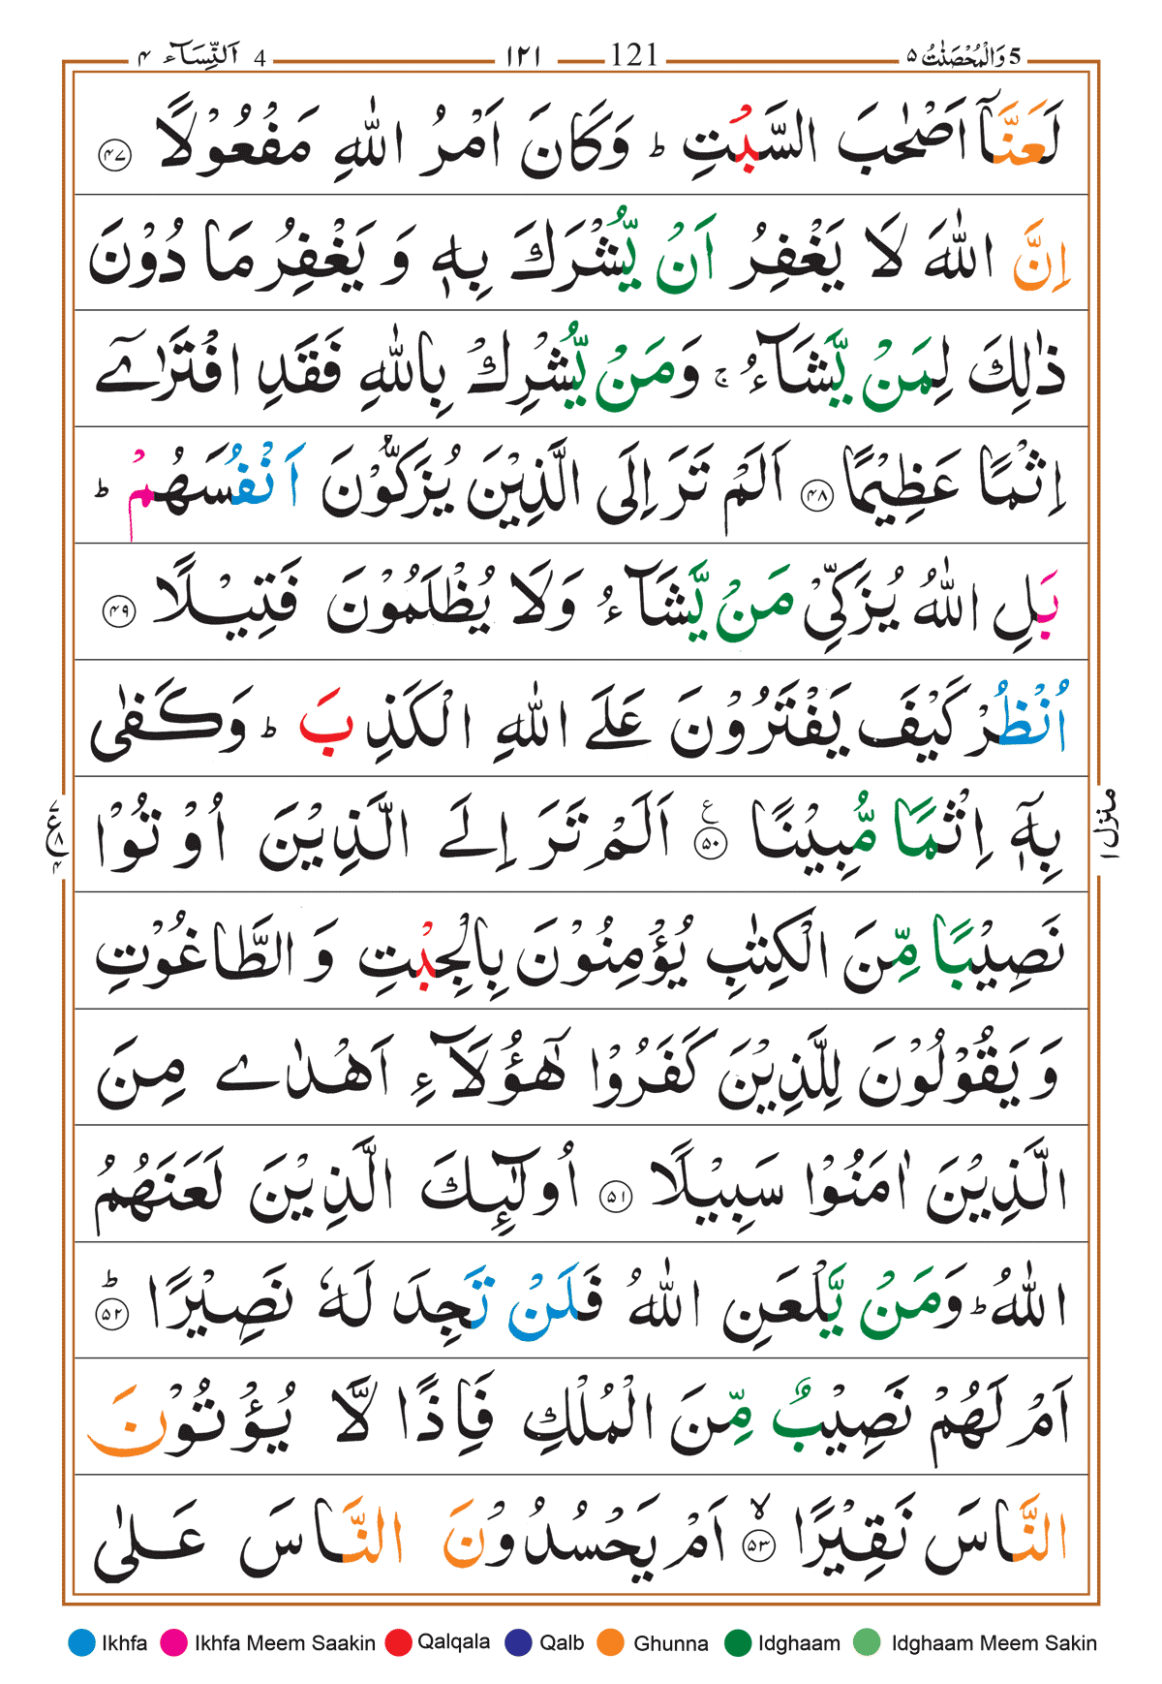 5 وَالْمُحْصَنٰتُ ۵ 121 ١٢١ 4 اَلنِّسَآء ۴
لَعَنَّاۤ اَصْحٰبَ السَّبْتِ ؕ وَكَانَ اَمْرُ اللّٰهِ مَفْعُوْلًا ﴿۴۷﴾
اِنَّ اللّٰهَ لَا يَغْفِرُ اَنْ يُّشْرَكَ بِهٖ وَ يَغْفِرُ مَا دُوْنَ
ذٰلِكَ لِمَنْ يَّشَآءُ ۚ وَمَنْ يُّشْرِكْ بِاللّٰهِ فَقَدِ افْتَرٰۤے
اِثْمًا عَظِيْمًا ﴿۴۸﴾ اَلَمْ تَرَ اِلَى الَّذِيْنَ يُزَكُّوْنَ اَنْفُسَهُمْ ؕ
بَلِ اللّٰهُ يُزَكِّىْ مَنْ يَّشَآءُ وَلَا يُظْلَمُوْنَ فَتِيْلًا ﴿۴۹﴾
اُنْظُرْ كَيْفَ يَفْتَرُوْنَ عَلَے اللّٰهِ الْكَذِبَ ؕ وَكَفٰى
بِهٖۤ اِثْمًا مُّبِيْنًا ﴿۵۰﴾ ع اَلَمْ تَرَ اِلَے الَّذِيْنَ اُوْتُوْا
نَصِيْبًا مِّنَ الْكِتٰبِ يُؤْمِنُوْنَ بِالْجِبْتِ وَ الطَّاغُوْتِ
وَيَقُوْلُوْنَ لِلَّذِيْنَ كَفَرُوْا هٰٓؤُلَآءِ اَهْدٰے مِنَ
الَّذِيْنَ اٰمَنُوْا سَبِيْلًا ﴿۵۱﴾ اُولٰٓئِكَ الَّذِيْنَ لَعَنَهُمُ
اللّٰهُ ؕ وَمَنْ يَّلْعَنِ اللّٰهُ فَلَنْ تَجِدَ لَهٗ نَصِيْرًا ؕ﴿۵۲﴾
اَمْ لَهُمْ نَصِيْبٌ مِّنَ الْمُلْكِ فَاِذًا لَّا يُؤْتُوْنَ
النَّاسَ نَقِيْرًا ۙ﴿۵۳﴾ اَمْ يَحْسُدُوْنَ النَّاسَ عَلٰى
منزل ١
٧ ع ٨ ۴
Ikhfa Ikhfa Meem Saakin Qalqala Qalb Ghunna Idghaam Idghaam Meem Sakin